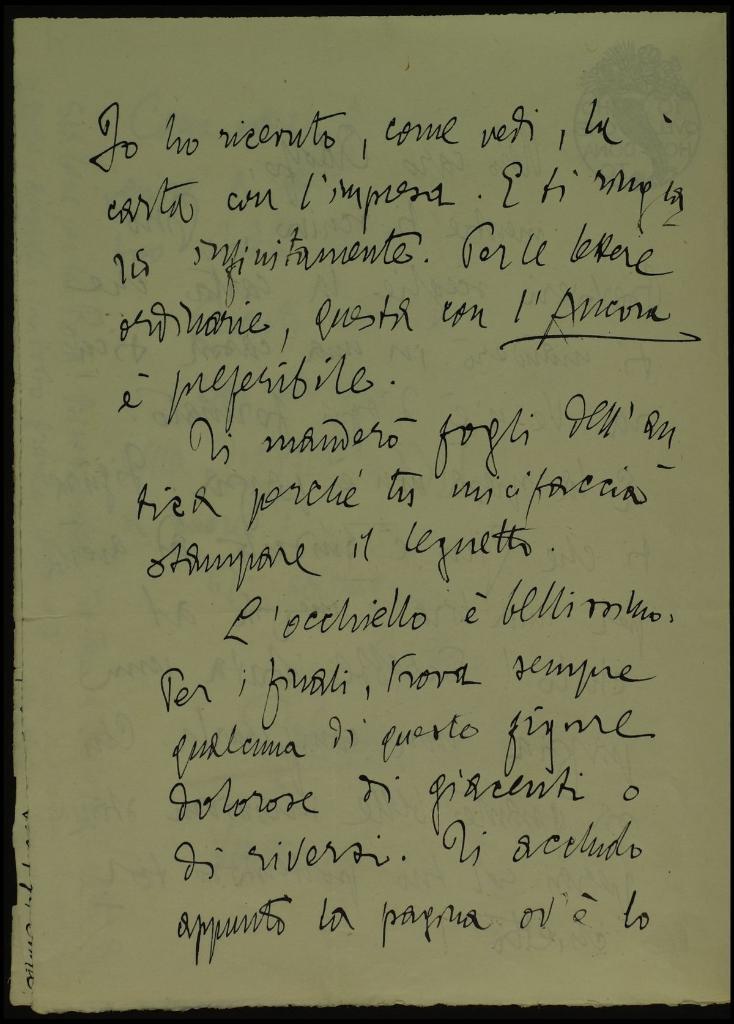 Io ho ricevuto, come vedi, la
carta con l'impresa. E ti ringra
zio infinitamente. Per le lettere
ordinarie, questa con l'Ancora
è preferibile.
Ti manderò fogli dell'an
tica perché tu mi ci faccia
stampare il legnetto.
L'occhiello è bellissimo.
Per i finali, trova sempre
qualcuna di queste figure
dolorose di giacenti o
di riversi. Ti accludo
appunto la pagina ov'è lo